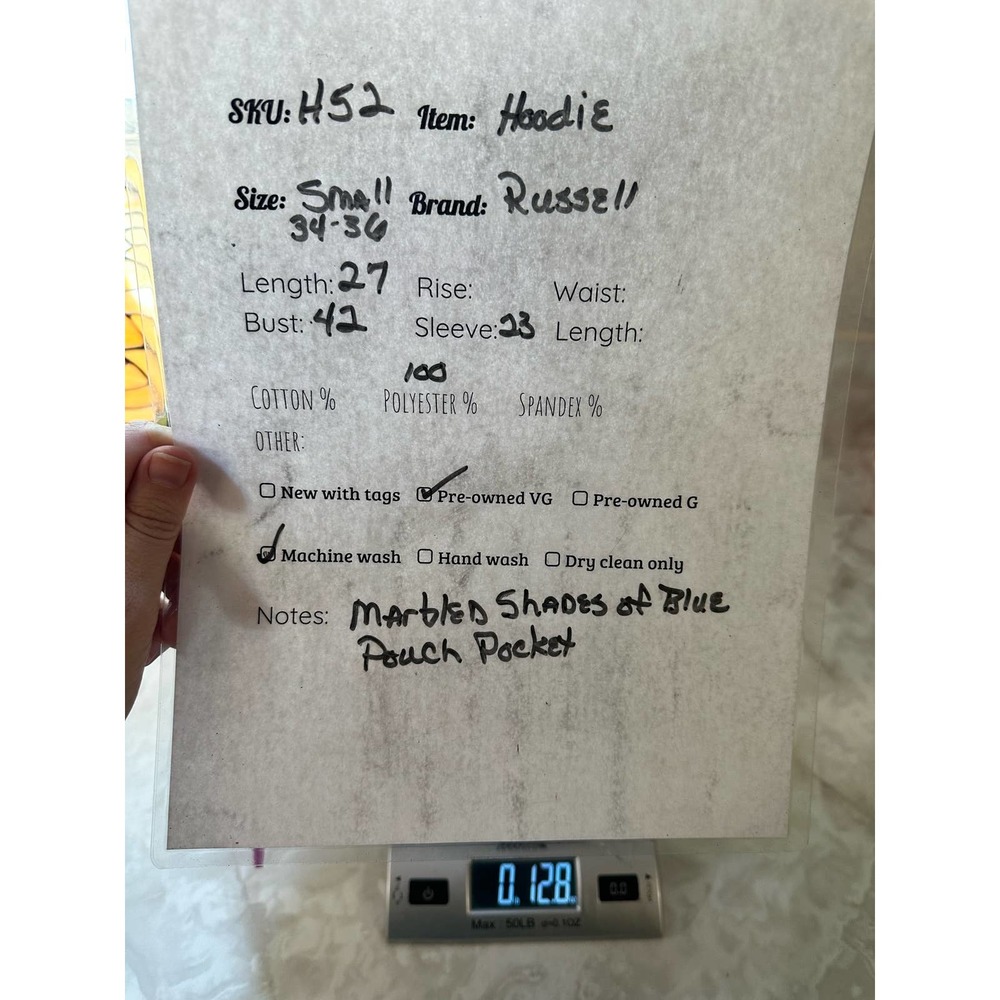 SKU: H52 Item: Hoodie
Size: Small Brand: Russell
34-36
Length: 27 Rise: Waist:
Bust: 42 Sleeve: 23 Length:
100
COTTON % POLYESTER % SPANDEX %
OTHER:
New with tags Pre-owned VG Pre-owned G
Machine wash Hand wash Dry clean only
Notes: Marbled Shades of Blue
Pouch Pocket
0.12.8
0.0
Max : 50LB d=0.1OZ